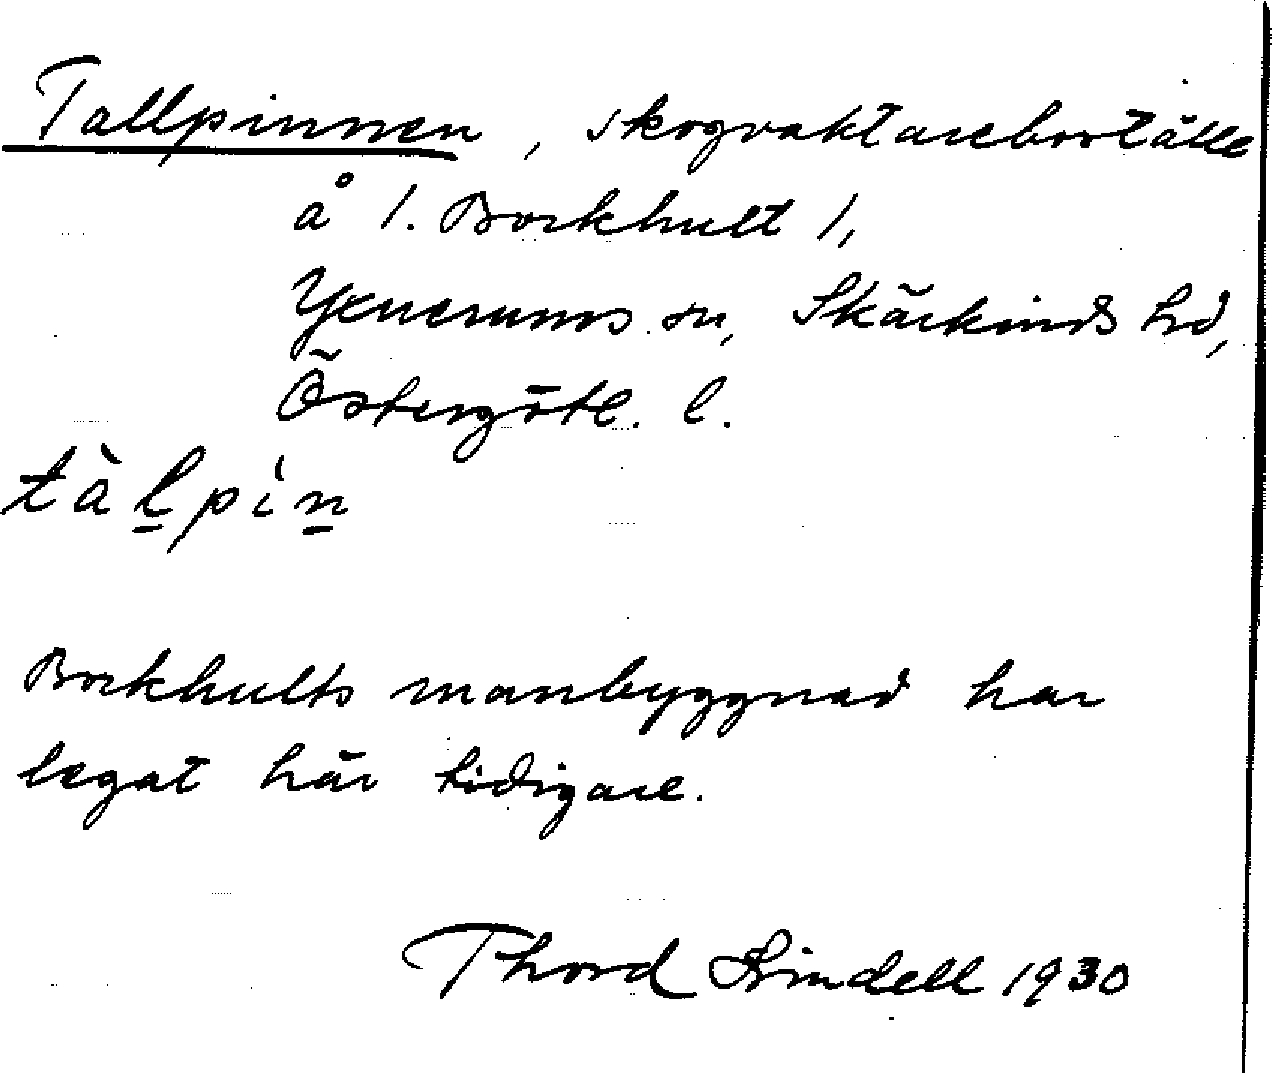 Tallpinnen, skogvaktareboställe
å 1. Borkhult 1,
Yxnerums sn, Skärkinds hd,
Östergötl. l.
tàl̠pi̍n̠
Borkhults manbyggnad har
legat här tidigare.
Thord Lindell 1930